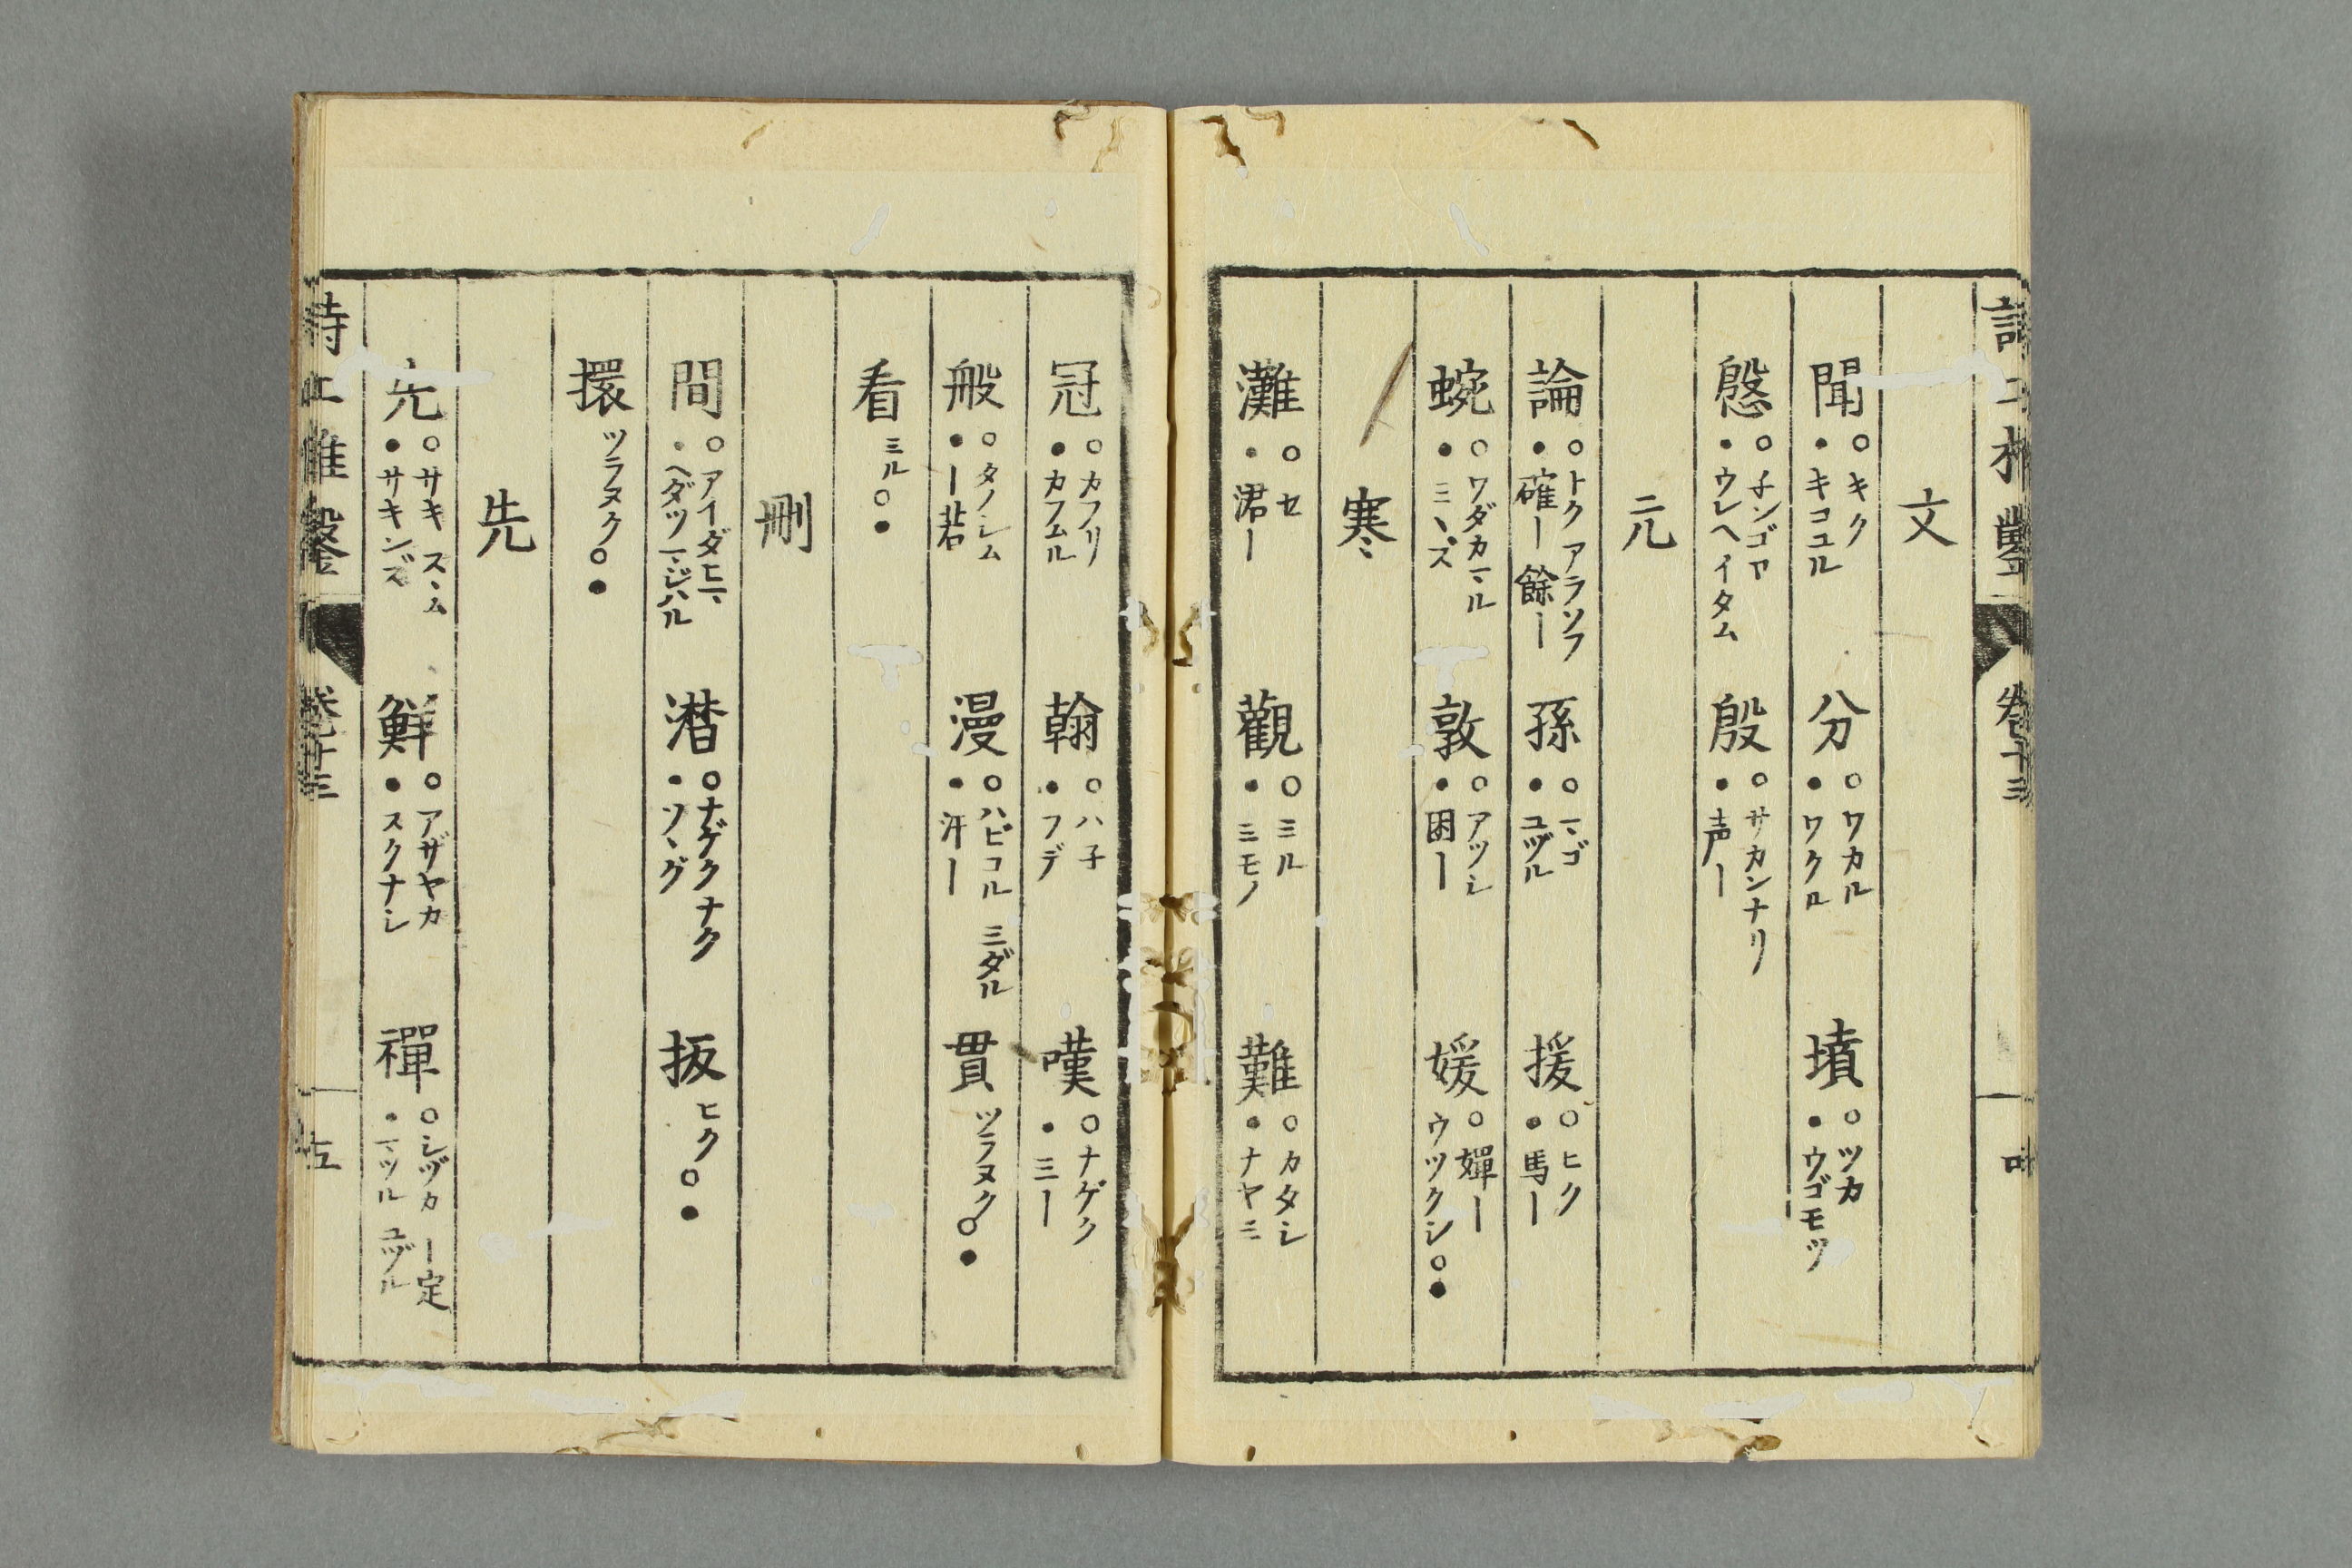 卷十三
文
聞 ○キク ●キコユル 分 ○ワカル ●ワクル 墳 ○ツカ ●ウゴモツ
慇 ○子ンゴロ ●ウレヘイタム 殷 ○サカンナリ ●声ー
元
論 ○トク アラソフ ●確ー 餘ー 孫 ○マゴ ●ユヅル 援 ○ヒク ●馬ー
蜿 ○ワダカマル ●ミヽズ 敦 ○アツシ ●困ー 媛 ○嬋ー ウツクシ○●
寒
灘 ○セ ●涒ー 觀 ○ミル ●ミモノ 難 ○カタシ ●ナヤミ
冠 ○カフリ ●カフムル 翰 ○ハ子 ●フデ 嘆 ○ナゲク ●三ー
般 ○タノシム ●ー若 漫 ○ハビコル ミダル ●汗ー 貫 ツラヌク○●
看 ミル○●
刪
間 ○アイダ ヒマ ●ヘダツ マジハル 潸 ○ナゲク ナク ●ソヽグ 扳 ヒク○●
擐 ツラヌク○●
先
先 ○サキ スヽム ●サキンズ 鮮 ○アザヤカ ●スクナシ 禪 ○シヅカ ー定 ●マツル ユヅル
卷十三